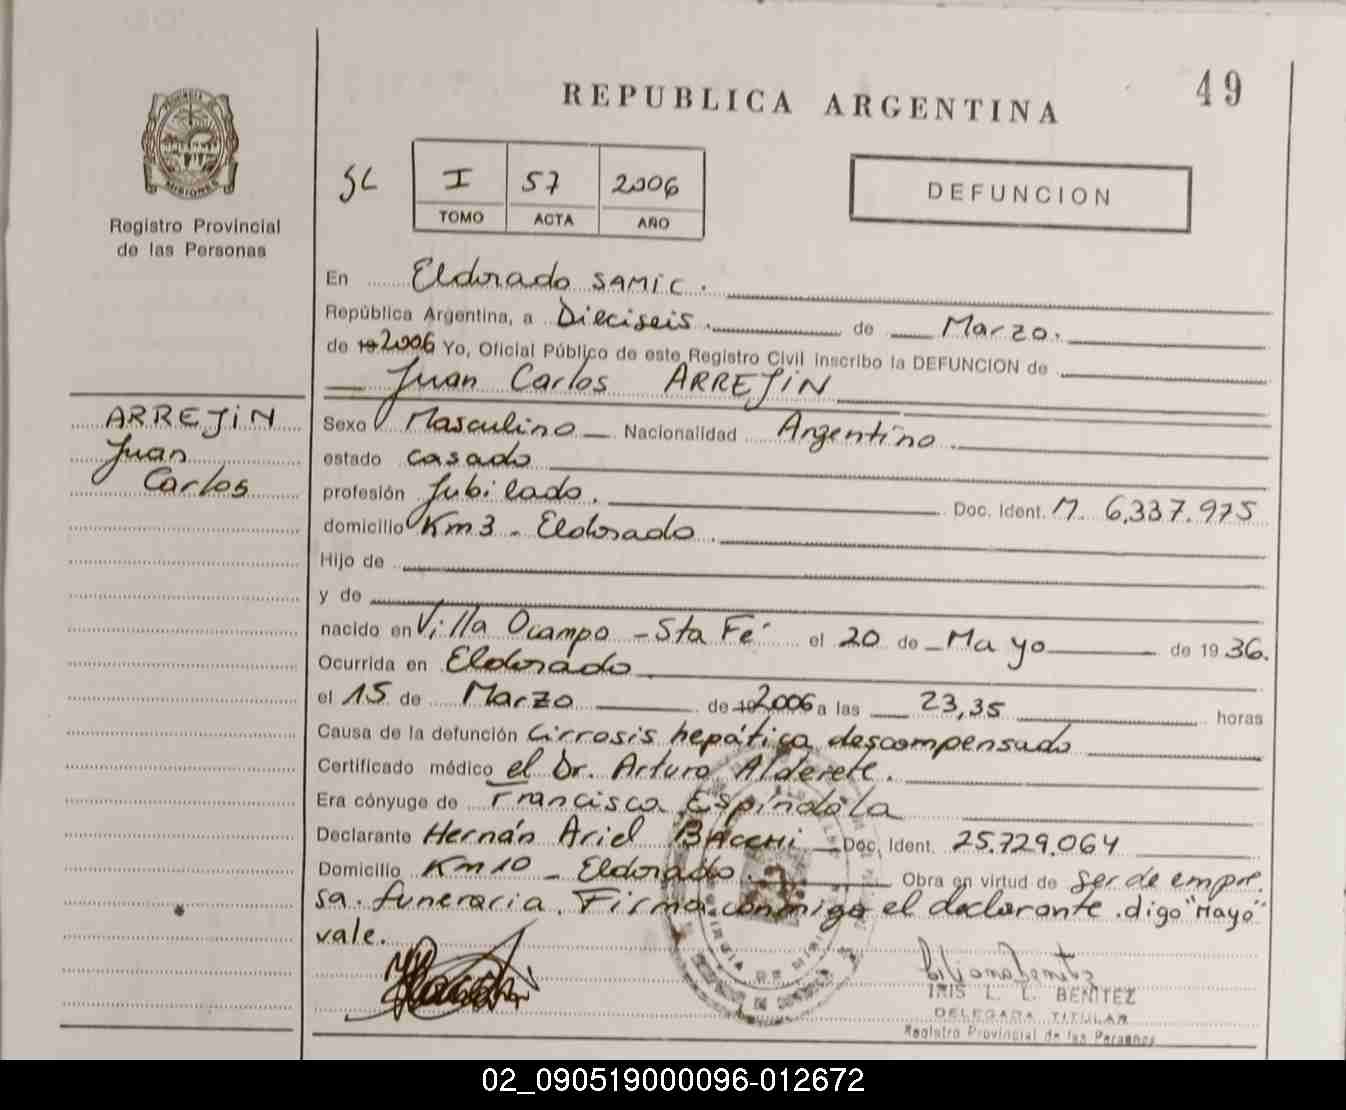 REPUBLICA ARGENTINA
49
PROVINCIA DE
MISIONES
Registro Provincial
de las Personas
SL
I 57 2006
TOMO ACTA AÑO
DEFUNCION
En Eldorado SAMIC.
República Argentina, a Dieciseis. de Marzo.
de 19 2006 Yo, Oficial Público de este Registro Civil inscribo la DEFUNCION de
Juan Carlos ARREJIN
ARREJIN
Juan
Carlos
Sexo Masculino Nacionalidad Argentino
estado casado
profesión Jubilado. Doc. Ident. M. 6,337.975
domicilio Km 3 - Eldorado.
Hijo de
y de
nacido en Villa Ocampo - Sta Fé el 20 de Mayo de 1936.
Ocurrida en Eldorado
el 15 de Marzo de 19 2006 a las 23,35 horas
Causa de la defunción Cirrosis hepática descompensado
Certificado médico el Dr. Arturo Alderete.
Era cónyuge de Francisca Espíndola
Declarante Hernán Ariel BACCHI Doc. Ident. 25.729.064
Domicilio Km 10 - Eldorado. Obra en virtud de ser de empre
sa. funeraria. Firma conmigo el declarante. digo "Mayo"
vale.
IRIS L. L. BENITEZ
DELEGADA TITULAR
Registro Provincial de las Personas
02_090519000096-012672